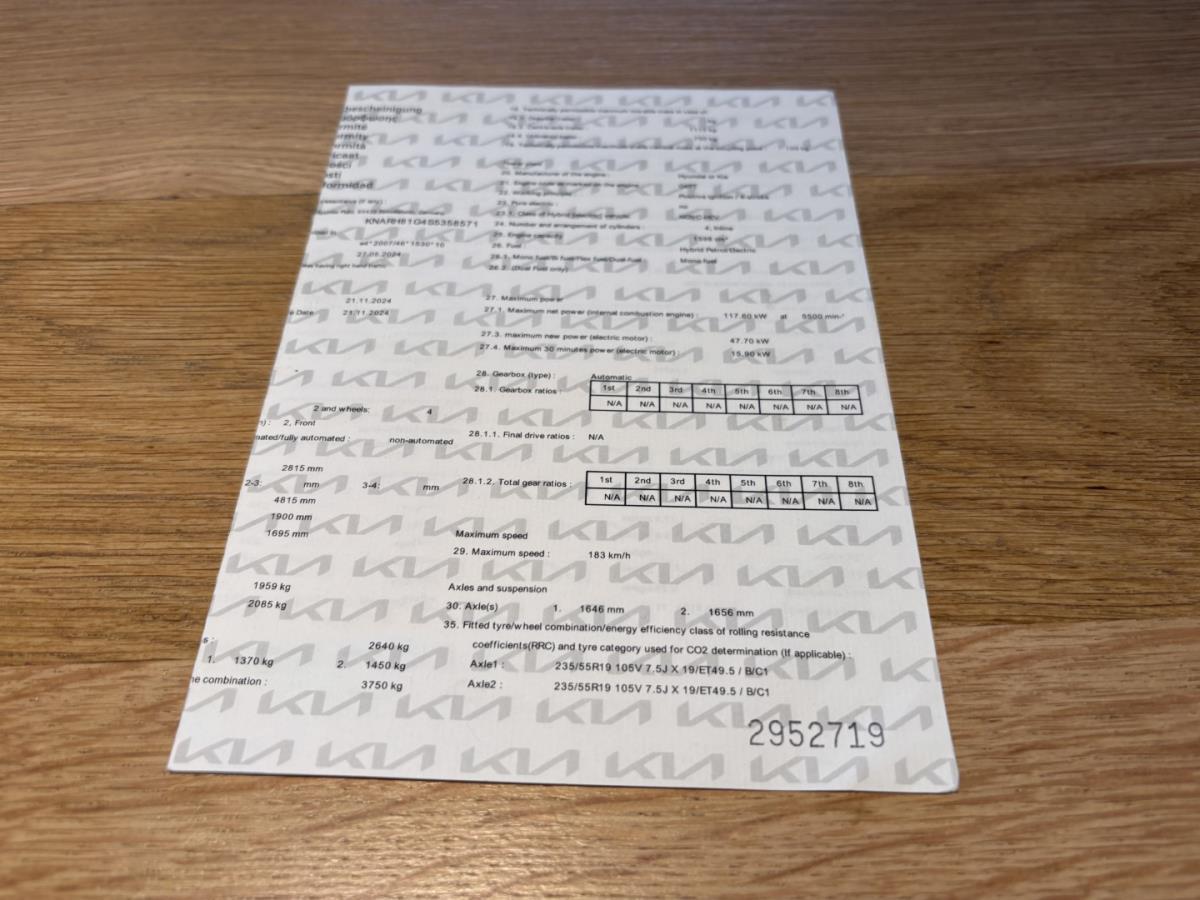 bescheinigung
rmité
rmity
rmità
formidad
KNARH81G4S5358571
27.09.2024
21.11.2024
e Date : 21.11.2024
2 and wheels: 4
2, Front
mated/fully automated : non-automated
2815 mm
2-3: mm 3-4: mm
4815 mm
1900 mm
1695 mm
1959 kg
2085 kg
s :
2640 kg
1. 1370 kg 2. 1450 kg
ne combination : 3750 kg
20. Manufacturer of the engine : Hyundai or Kia
22. Working principle : Positive ignition / 4-stroke
23. Pure electric : no
24. Number and arrangement of cylinders : 4, Inline
25. Engine capacity : 1598 cm³
26. Fuel : Hybrid Petrol/Electric
Mono fuel
26.2. (Dual Fuel only) :
27. Maximum power
27.1. Maximum net power (internal combustion engine) : 117.60 kW at 5500 min-¹
27.3. maximum new power (electric motor) : 47.70 kW
27.4. Maximum 30 minutes power (electric motor) : 15.90 kW
28. Gearbox (type) : Automatic
28.1. Gearbox ratios :
1st 2nd 3rd 4th 5th 6th 7th 8th
N/A N/A N/A N/A N/A N/A N/A N/A
28.1.1. Final drive ratios : N/A
28.1.2. Total gear ratios :
1st 2nd 3rd 4th 5th 6th 7th 8th
N/A N/A N/A N/A N/A N/A N/A N/A
Maximum speed
29. Maximum speed : 183 km/h
Axles and suspension
30. Axle(s) 1. 1646 mm 2. 1656 mm
35. Fitted tyre/wheel combination/energy efficiency class of rolling resistance
coefficients(RRC) and tyre category used for CO2 determination (If applicable) :
Axle1 : 235/55R19 105V 7.5J X 19/ET49.5 / B/C1
Axle2 : 235/55R19 105V 7.5J X 19/ET49.5 / B/C1
2952719